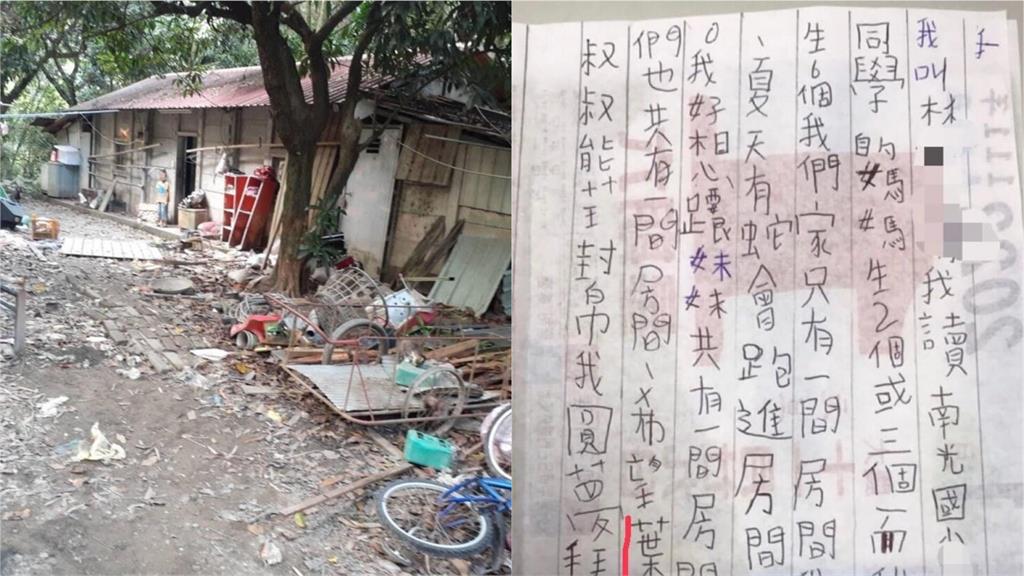 我叫林我讀南光國小
同學的媽媽生2個或三個而
生6個我們家只有一間房間
、夏天有蛇會跑進房間
。我好想跟妹妹共有一間房間
們也共有一間房間、希望葉
叔叔能幫我圓夢